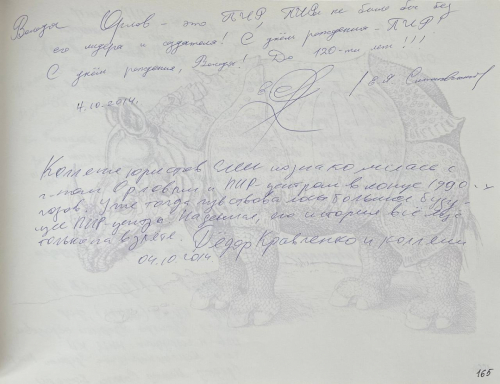 Володя Орлов - это ПИР. ПИРа не было бы без
его лидера и создателя! С днём рождения - ПИР!
С днём рождения, Володя! До 120-ти лет!!!
4.10.2014.
юристов познакомилась с
г-ном Орловым и ПИР-центром в конце 1990-х
годов. Уже тогда чувствовалось большое буду-
щее ПИР-центра. что история всё ещё
только на взлете. Фёдор Кравченко и коллеги
04.10.2014
165